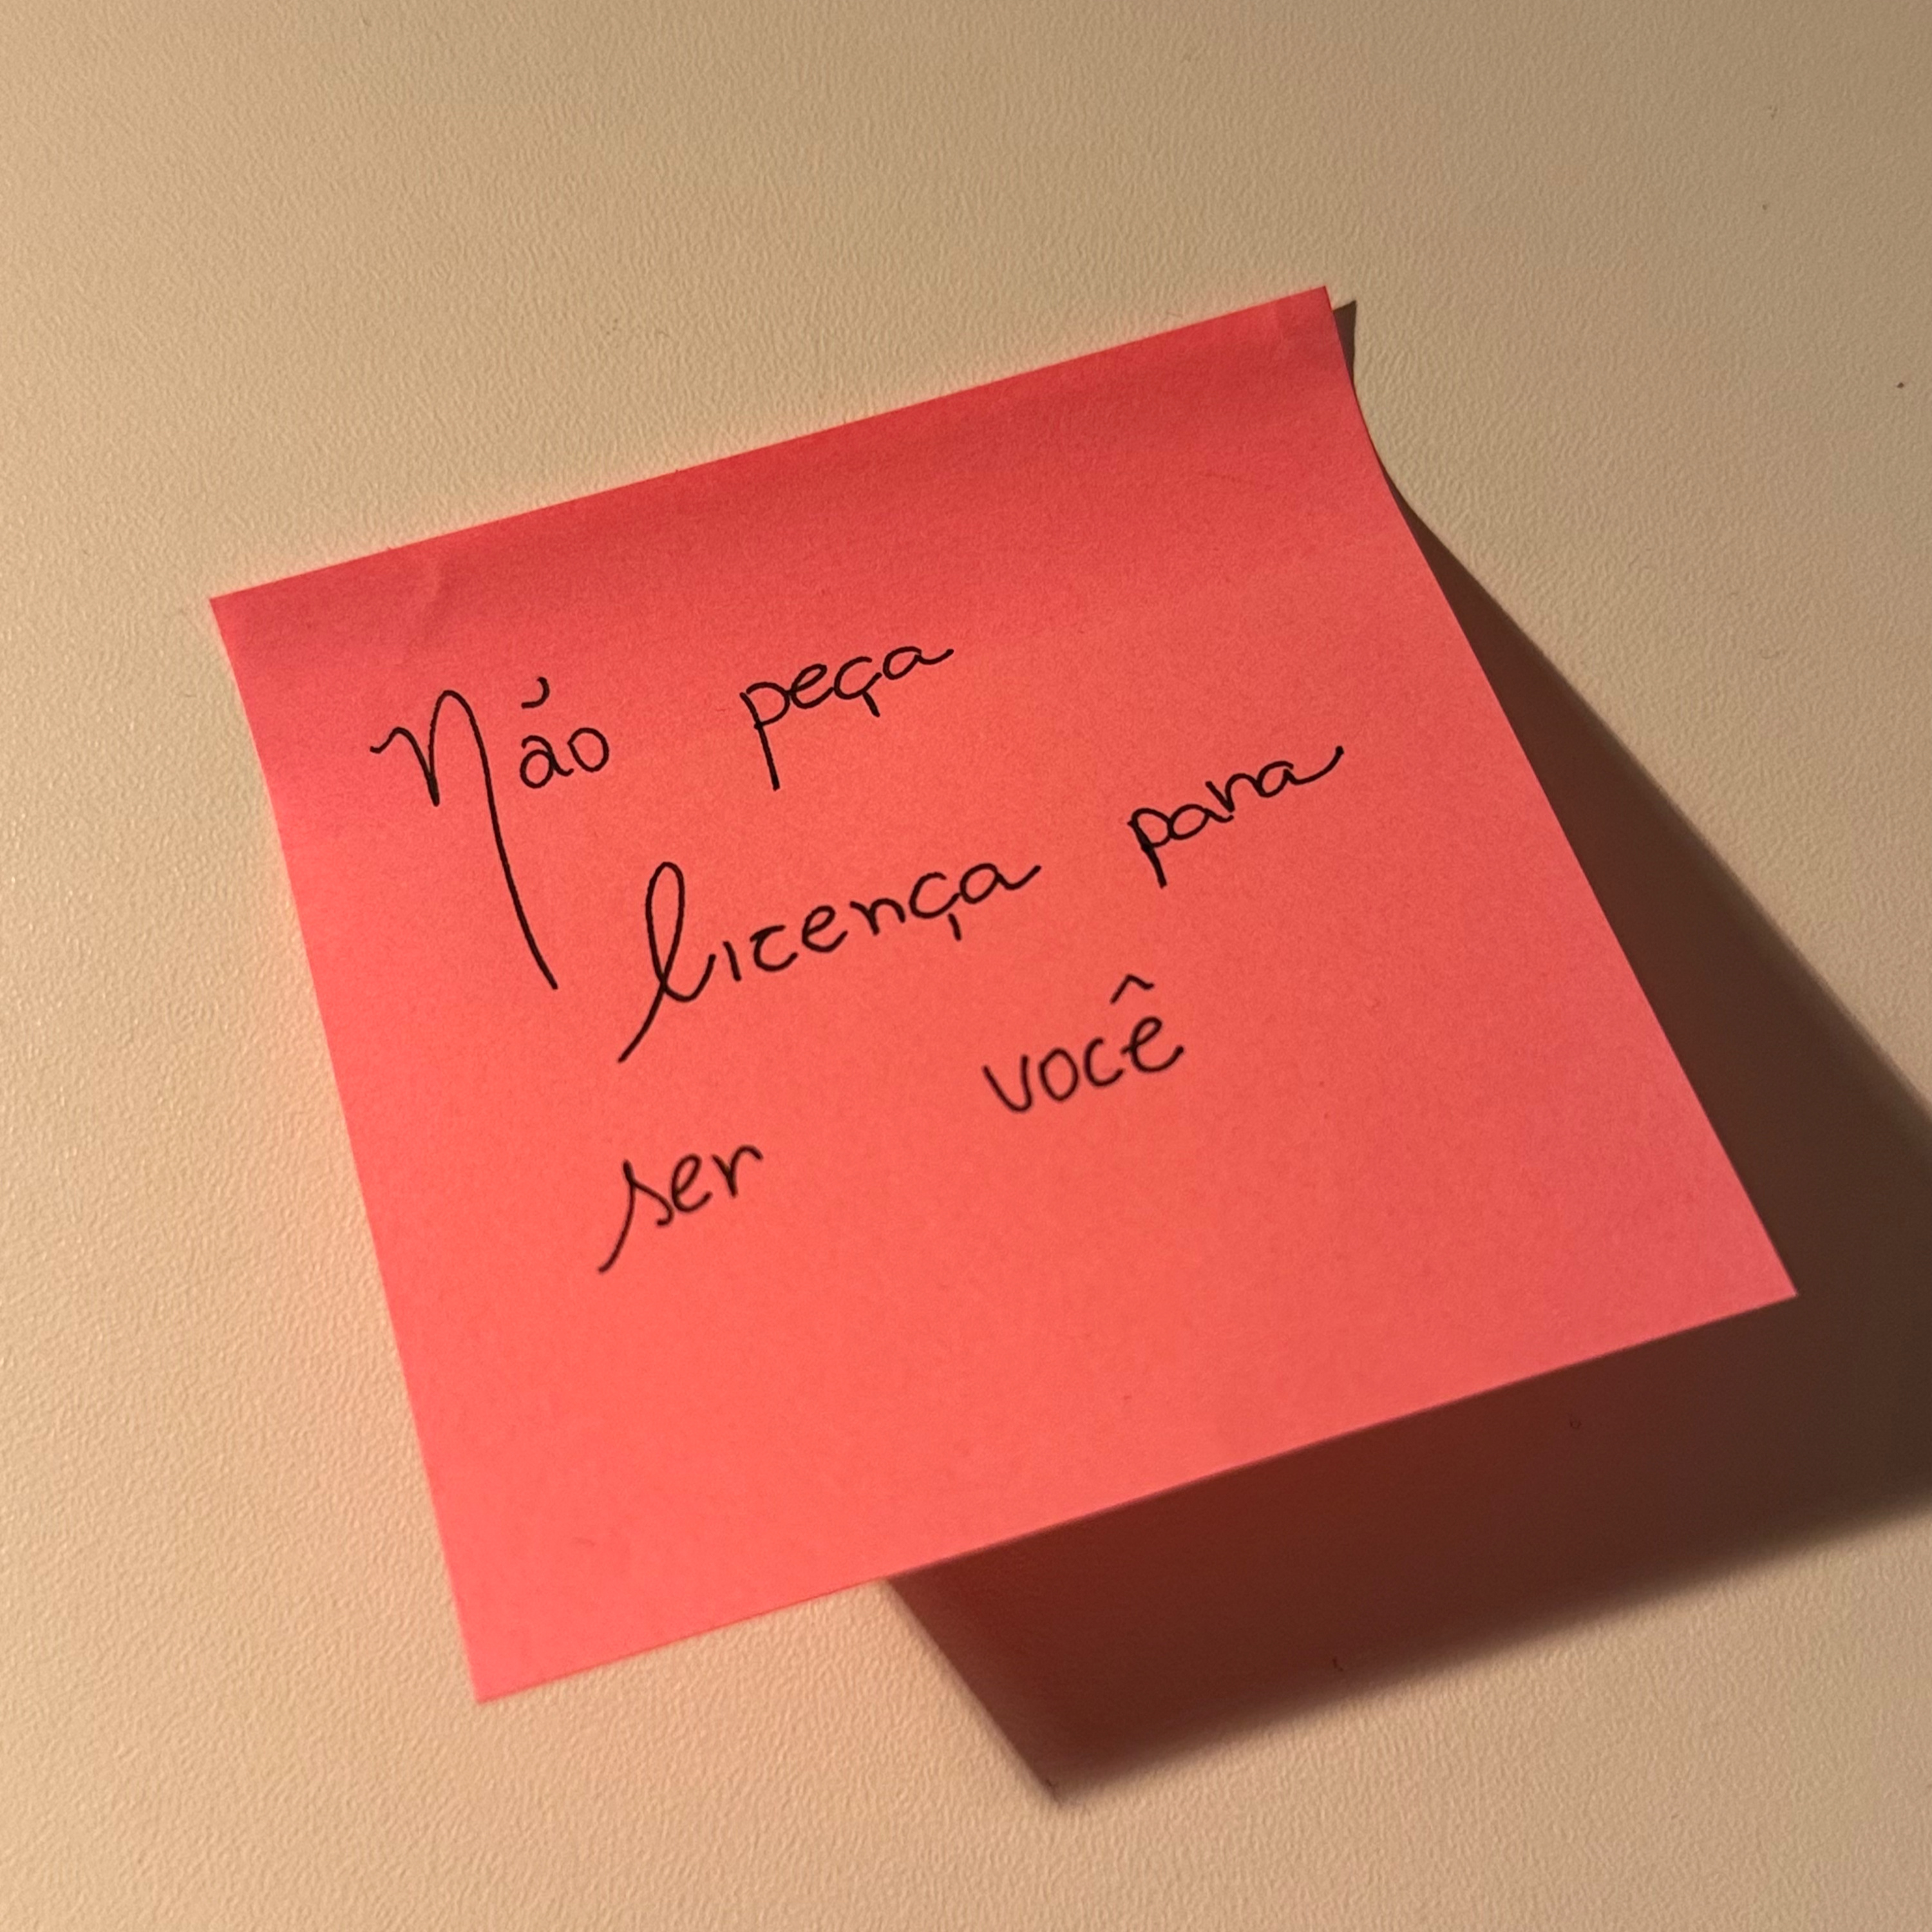 Não peça
licença para
ser você